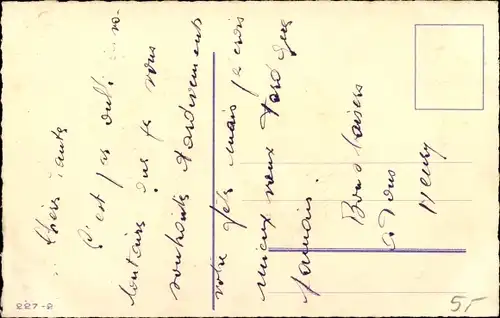 Chère Tante
C'est par oubli invo-
lontaire que je vous
souhaite tardivement
votre fête mais je crois
mieux vaux tard que
jamais.
Bons baisers
à tous
Henry
227-2
5,-